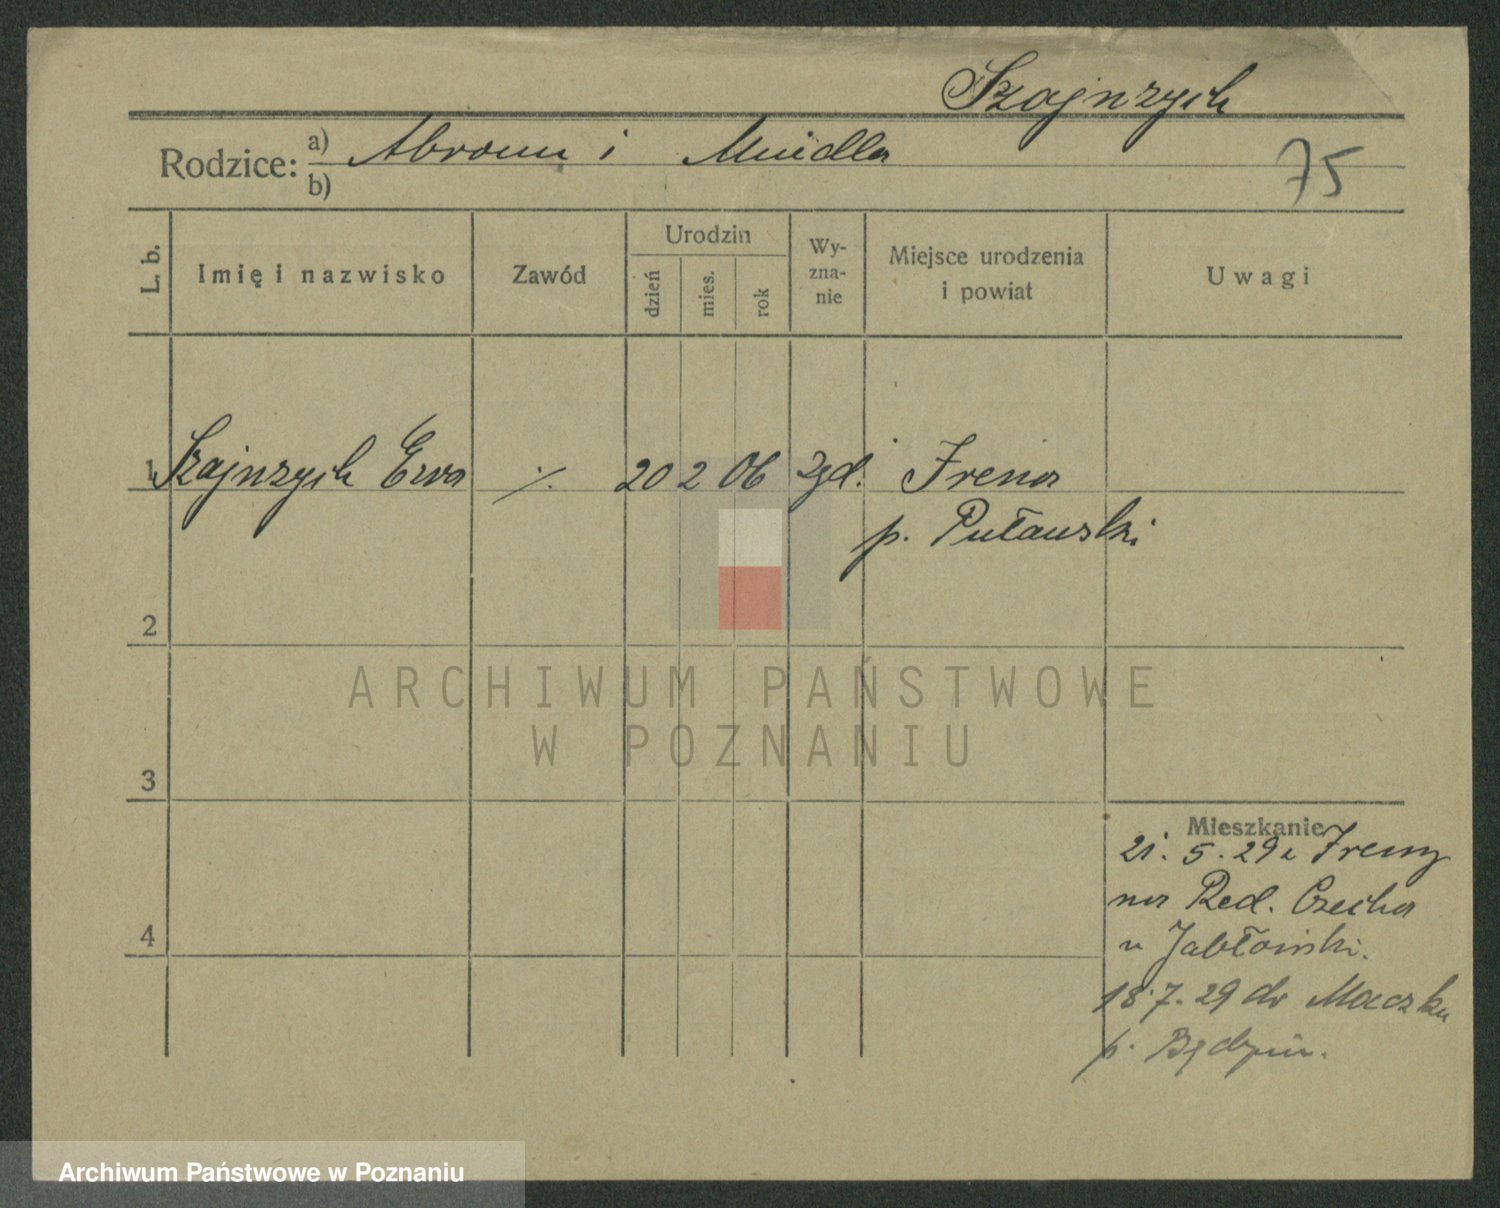 Szajnzych
Rodzice: a) Abram i Mindla
b)
75
L. b. Imię i nazwisko Zawód Urodzin dzień mies. rok Wy-zna-nie Miejsce urodzenia i powiat Uwagi
1 Szajnzych Ewa ·/. 20 2 06 żyd. Irena
p. Puławski
2
ARCHIWUM PAŃSTWOWE
W POZNANIU
3
Mieszkanie
21. 5. 29 z Ireny
na Red. Czecha
u Jabłoński.
18.7.29 do Maczku
p. Będzin.
4
Archiwum Państwowe w Poznaniu